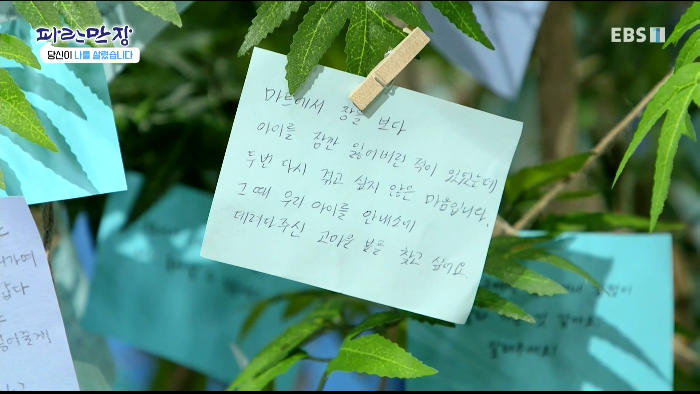 피란만장
당신이 나를 살렸습니다
EBS1
마트에서 장을 보다
아이를 잠깐 잃어버린 적이 있었는데
두번 다시 겪고 싶지 않은 마음입니다.
그때 우리 아이를 안내소에
데려다주신 고마운 분을 찾고 싶어요.
나가며
갑다
말해주세요!